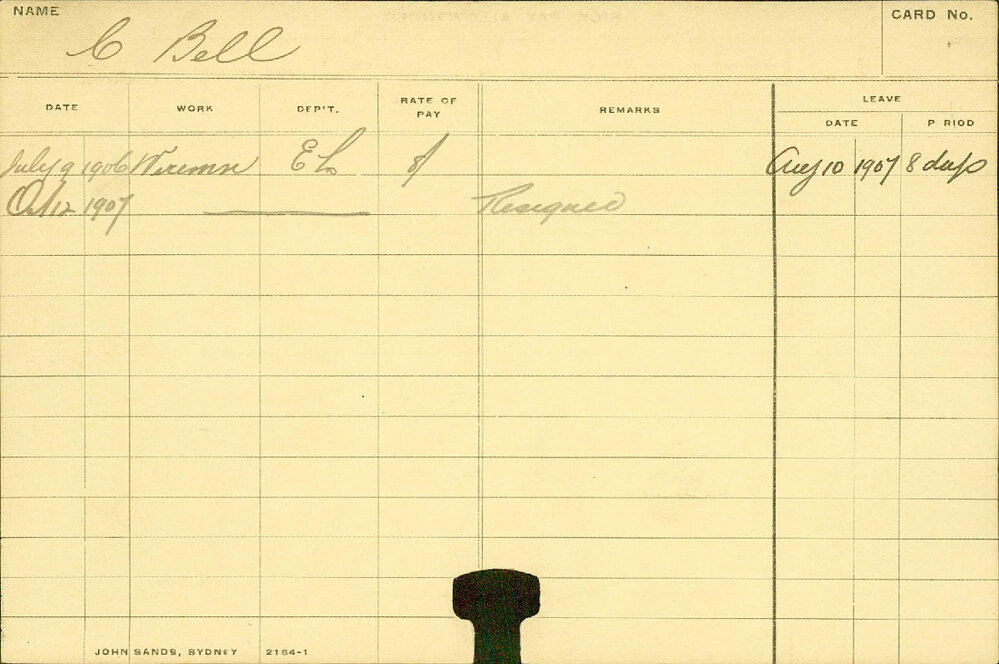 NAME
C Bell
CARD No.
DATE WORK DEP'T. RATE OF PAY REMARKS LEAVE
DATE P RIOD
July 9 1906 Wiremn EL 8/ Aug 10 1907 8 days
Oct 12 1907 Resigned
JOHN SANDS, SYDNEY 2164-1